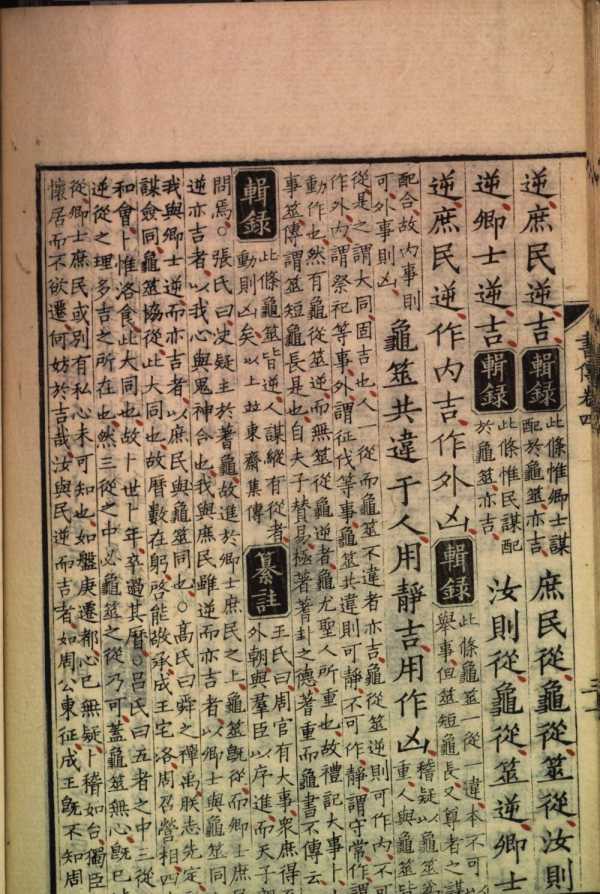 書傳卷四
逆庶民逆吉輯録
此條惟卿士謀
配於龜筮亦吉
庶民從龜從筮從汝則
逆卿士逆吉輯録
此條惟民謀配
於龜筮亦吉
汝則從龜從筮逆卿士
逆庶民逆作内吉作外凶輯録
此條龜筮一從一違本不可
舉事但筮短龜長又尊者之謀
配合故内事則
可外事則凶
龜筮共違于人用靜吉用作凶
稽疑以龜筮
重人與龜筮皆
從是之謂大同固吉也人一從而龜筮不違者亦吉龜筮逆則可作内不可
作外内謂祭祀等事外謂征伐等事龜筮共違則可靜不可作靜謂守常作謂
動作也然有龜從筮逆而無筮從龜逆者龜尤聖人所重也故禮記大事卜
事筮傳謂筮短龜長是也自夫子賛易極著蓍卦之德蓍重而龜書不傳云
輯録
此條龜筮皆逆人謀縱有從者
動則凶矣以上並東齋集傳
纂註
王氏曰周官有大事衆庶得
外朝與羣臣以序進而天子親
問焉○張氏曰決疑主於蓍龜故進於卿士庶民之上龜筮既從而卿士庶
逆亦吉者以我心與鬼神合也我與庶民雖逆而亦吉者以卿士與龜筮同
我與卿士逆而亦吉者以庶民與龜筮同也○高氏曰舜之禪禹朕志先定
謀僉同龜筮協從此大同也故曆數在躬啓能敬承成王宅洛周召營相四
和會卜惟洛食此大同也故卜世卜年卒過其曆○吕氏曰五者之中三從
逆從之理多吉之所在也然三從之中必龜筮之從乃可蓋龜筮無心既已
從卿士庶民或别有私心未可知也如盤庚遷都心已無疑卜稽如台獨臣
懷居而不欲遷何妨於吉哉汝與民逆而吉者如周公東征成王既不知周